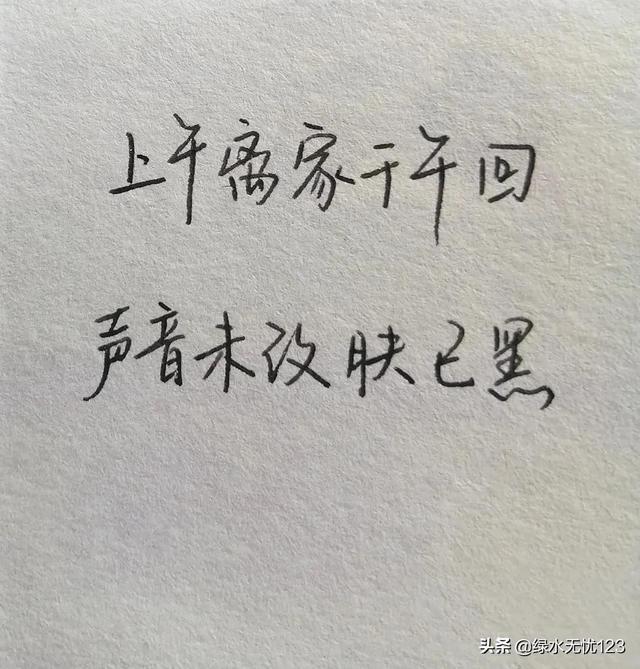 上午离家下午回
声音未改肤已黑
头条 @绿水无忧123